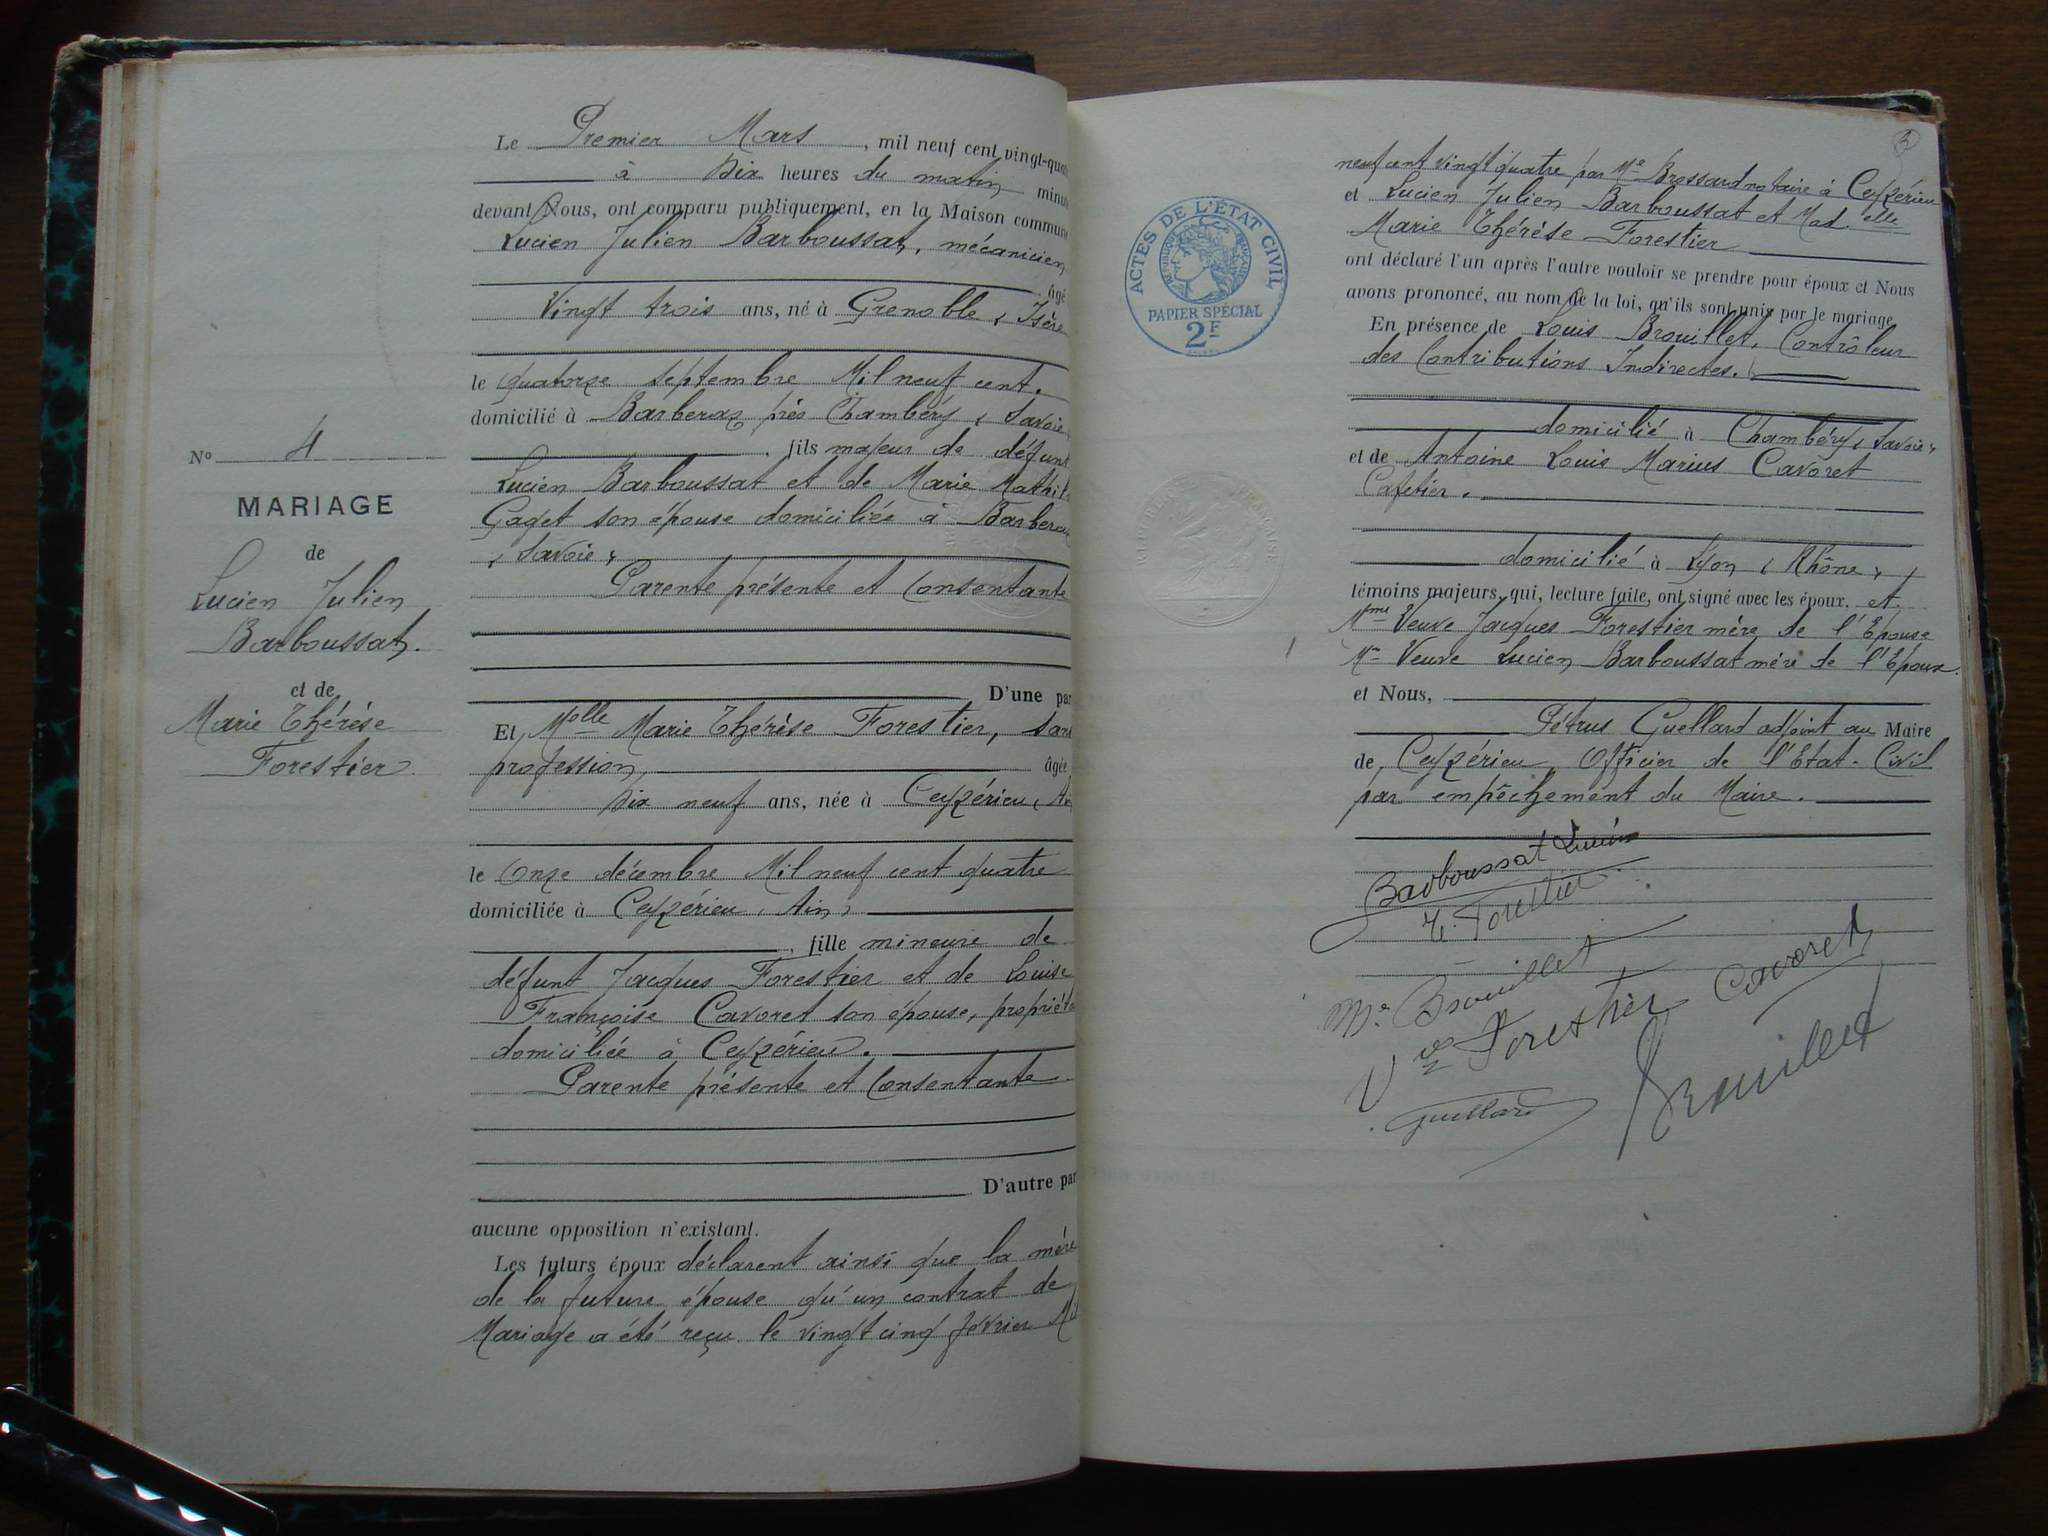 Le Premier Mars, mil neuf cent vingt-qua
à Dix heures du matin minu
devant Nous, ont comparu publiquement, en la Maison commun
Lucien Julien Barboussat, mécanicien
âgé
Vingt trois ans, né à Grenoble, Isère
le quatorze septembre Mil neuf cent.
domicilié à Barberaz près Chambéry, Savoie
, fils majeur de défunt
Lucien Barboussat et de Marie Mathil
Gaget son épouse domiciliée à Barberaz
, Savoie,
Parente présente et Consentante
D'une par
Nº 4
MARIAGE
de
Lucien Julien
Barboussat.
et de
Marie Thérèse
Forestier.
Et Melle Marie Thérèse Forestier, san
profession, âgée
Dix neuf ans, née à Ceyzérieu, Ai
le Onze décembre Mil neuf cent quatre
domiciliée à Ceyzérieu, Ain,
, fille mineure de
défunt Jacques Forestier et de Louise
Françoise Cavoret son épouse, propriét
domiciliée à Ceyzérieu.
Parente présente et Consentante
D'autre par
aucune opposition n'existant.
Les futurs époux déclarent ainsi que la mère
de la future épouse qu'un contrat de
Mariage a été reçu le vingt cinq février Mil
3
neuf cent vingt quatre par Me Brossard notaire à Ceyzérieu
et Lucien Julien Barboussat et Mad.elle
Marie Thérèse Forestier
ont déclaré l'un après l'autre vouloir se prendre pour époux et Nous
avons prononcé, au nom de la loi, qu'ils sont unis par le mariage.
En présence de Louis Brouillet, Contrôleur
des Contributions Indirectes.
domicilié à Chambéry, Savoie,
et de Antoine Louis Marius Cavoret
Cafetier.
domicilié à Lyon, Rhône,
témoins majeurs, qui, lecture faite, ont signé avec les époux. et
Mme Veuve Jacques Forestier mère de l'Epouse
Me Veuve Lucien Barboussat mère de l'Epoux.
et Nous,
Pétrus Guellard adjoint au Maire
de Ceyzérieu, Officier de l'Etat-Civil
par empêchement du Maire.
ACTES DE L'ÉTAT CIVIL
RÉPUBLIQUE FRANÇAISE
PAPIER SPÉCIAL
2F
RÉPUBLIQUE FRANÇAISE
Barboussat Lucien
T. Forestier
Me Brouillet
Cavoret
Vve Forestier
Brouillet
Guellard